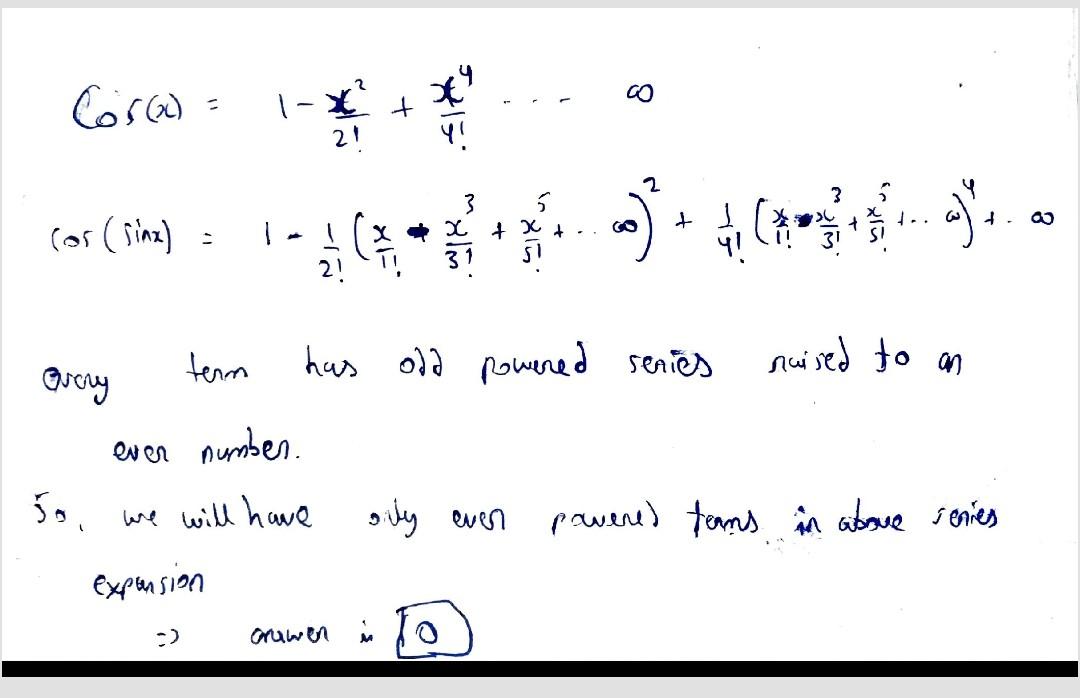 Cos(x) = 1 - x²/2! + x⁴/4! ---- ∞
cos(sinx) = 1 - 1/2! (x/1! - x³/3! + x⁵/5! + .. ∞)² + 1/4! (x/1! - x³/3! + x⁵/5! + .. ∞)⁴ + . ∞
Every term has odd powered series raised to an
even number.
So, we will have only even powered terms in above series
expansion
=> answer is 0